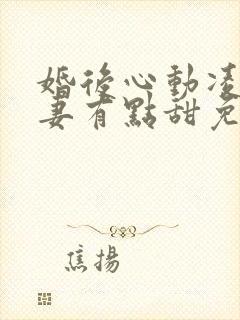 婚後心動凌
妻有點甜免
焦揚